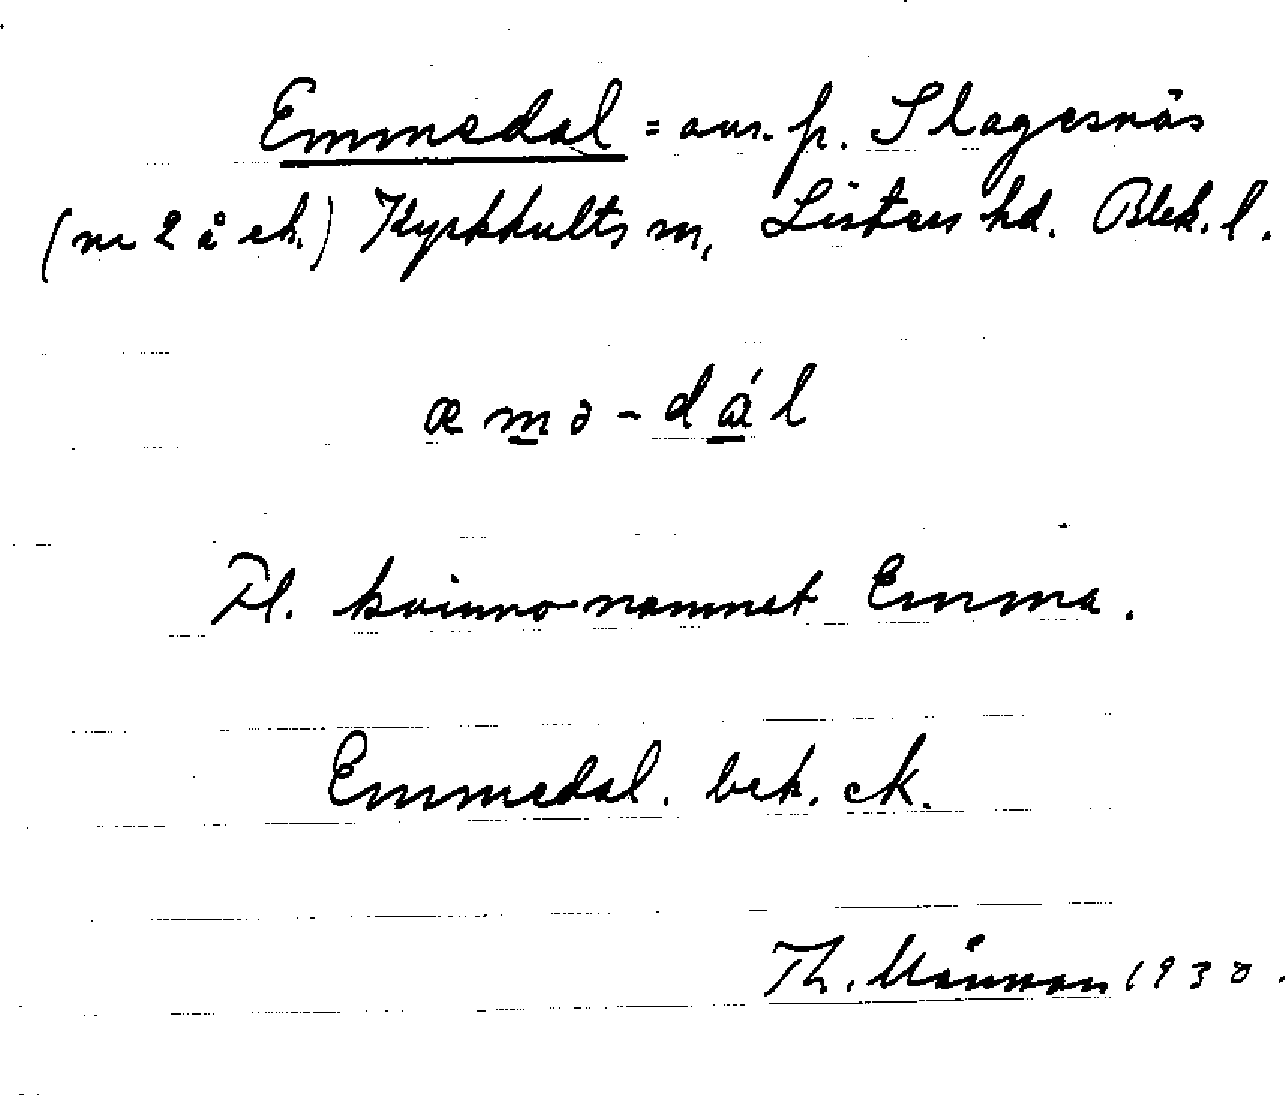 Emmedal = avs. fr. Slagesnäs
(nr 2 å ek.) Kyrkhults sn, Listers hd. Blek. l.
æmə-dál
Til. kvinnonamnet Emma.
Emmedal. bek. ek.
Th. Månson 1930.